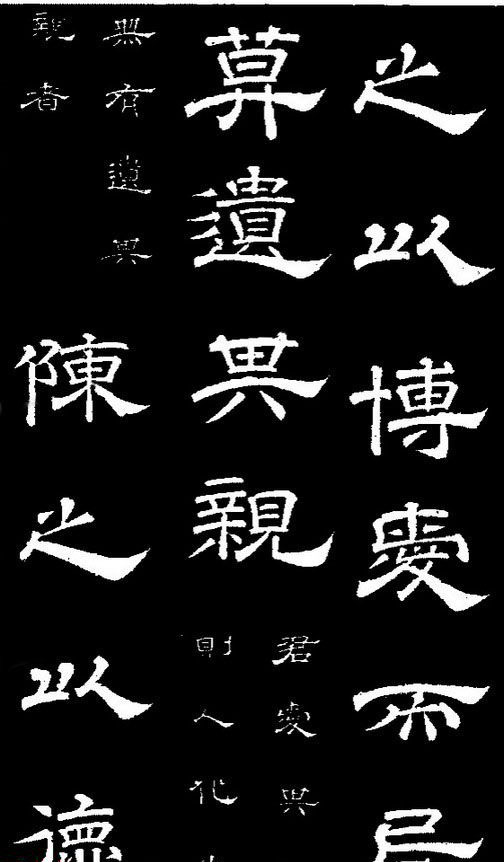 之以博愛而民
莫遺其親
君愛其
則人化
無有遺其
親者
陳之以德